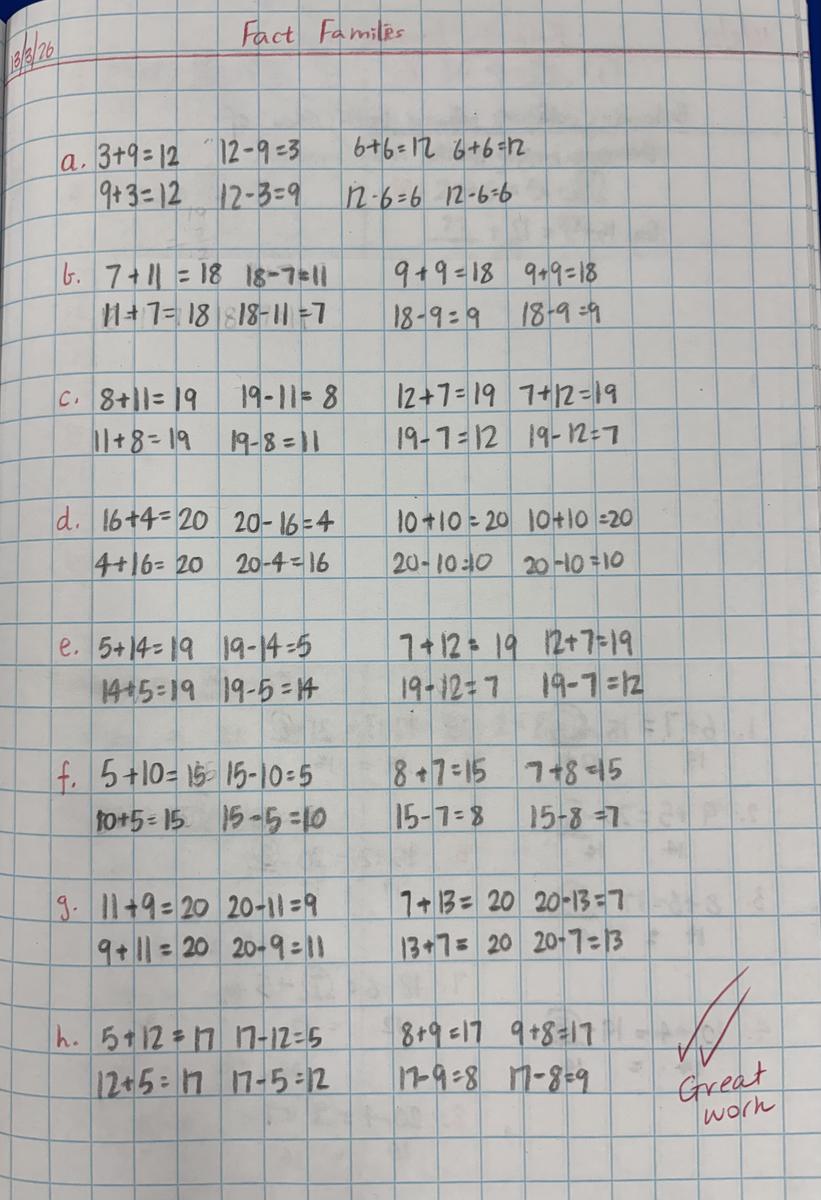 13/3/26
Fact Families
a. 3+9=12 12-9=3 6+6=12 6+6=12
9+3=12 12-3=9 12-6=6 12-6=6
b. 7+11=18 18-7=11 9+9=18 9+9=18
11+7=18 18-11=7 18-9=9 18-9=9
c. 8+11=19 19-11=8 12+7=19 7+12=19
11+8=19 19-8=11 19-7=12 19-12=7
d. 16+4=20 20-16=4 10+10=20 10+10=20
4+16=20 20-4=16 20-10=10 20-10=10
e. 5+14=19 19-14=5 7+12=19 12+7=19
14+5=19 19-5=14 19-12=7 19-7=12
f. 5+10=15 15-10=5 8+7=15 7+8=15
10+5=15 15-5=10 15-7=8 15-8=7
g. 11+9=20 20-11=9 7+13=20 20-13=7
9+11=20 20-9=11 13+7=20 20-7=13
h. 5+12=17 17-12=5 8+9=17 9+8=17
12+5=17 17-5=12 17-9=8 17-8=9
Great
work